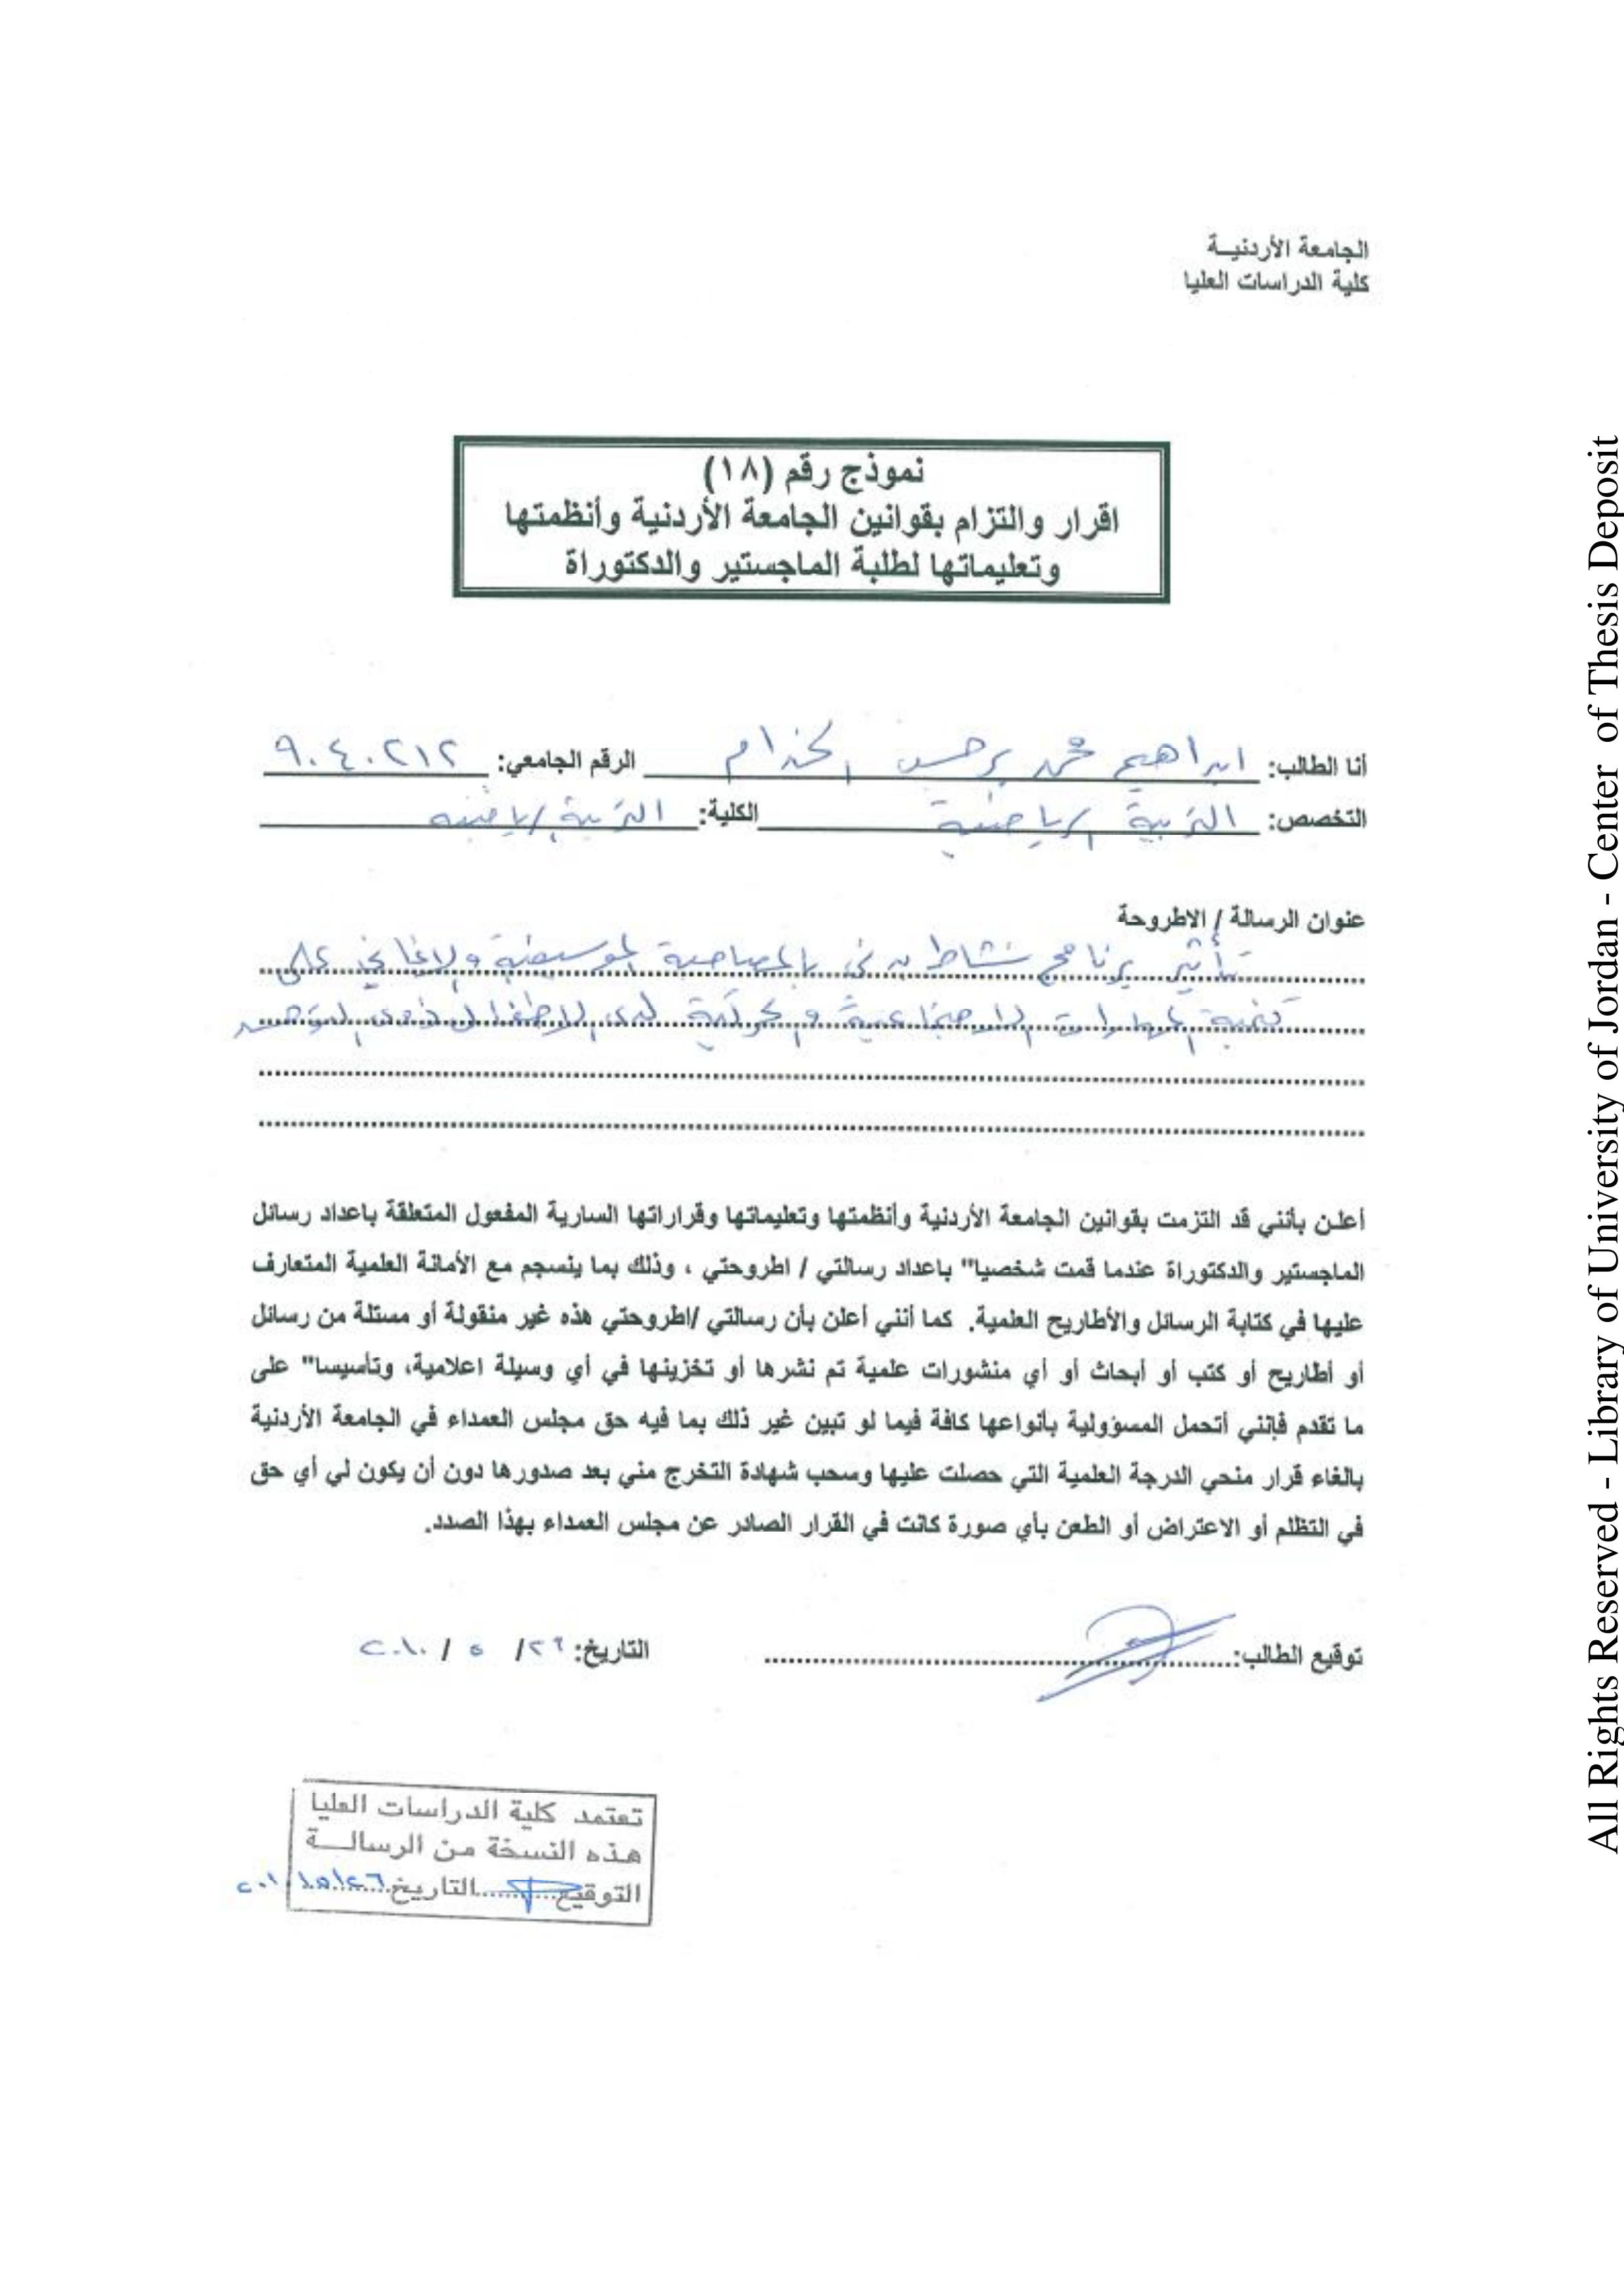 الجامعة الأردنيـة
كلية الدراسات العليا
نموذج رقم (١٨)
اقرار والتزام بقوانين الجامعة الأردنية وأنظمتها
وتعليماتها لطلبة الماجستير والدكتوراة
أنا الطالب: ابراهيم محمد الخدام الرقم الجامعي: ٩٠٤٠٢١٢
التخصص: التربية الرياضية الكلية: التربية الرياضية
عنوان الرسالة / الاطروحة
تأثير برنامج نشاط بدني بالمصاحبة الموسيقية والاغاني على
تنمية المهارات الاجتماعية والحركية لدى الاطفال ذوي التوحد
أعلن بأنني قد التزمت بقوانين الجامعة الأردنية وأنظمتها وتعليماتها وقراراتها السارية المفعول المتعلقة باعداد رسائل
الماجستير والدكتوراة عندما قمت شخصيا" باعداد رسالتي / اطروحتي ، وذلك بما ينسجم مع الأمانة العلمية المتعارف
عليها في كتابة الرسائل والأطاريح العلمية. كما أنني أعلن بأن رسالتي /اطروحتي هذه غير منقولة أو مستلة من رسائل
أو أطاريح أو كتب أو أبحاث أو أي منشورات علمية تم نشرها أو تخزينها في أي وسيلة اعلامية، وتأسيسا" على
ما تقدم فإنني أتحمل المسؤولية بأنواعها كافة فيما لو تبين غير ذلك بما فيه حق مجلس العمداء في الجامعة الأردنية
بالغاء قرار منحي الدرجة العلمية التي حصلت عليها وسحب شهادة التخرج مني بعد صدورها دون أن يكون لي أي حق
في التظلم أو الاعتراض أو الطعن بأي صورة كانت في القرار الصادر عن مجلس العمداء بهذا الصدد.
توقيع الطالب: التاريخ: ٢٦/ ٥ / ٢٠١٠
تعتمد كلية الدراسات العليا
هذه النسخة من الرسالـــة
التوقيع.......التاريخ
All Rights Reserved - Library of University of Jordan - Center of Thesis Deposit